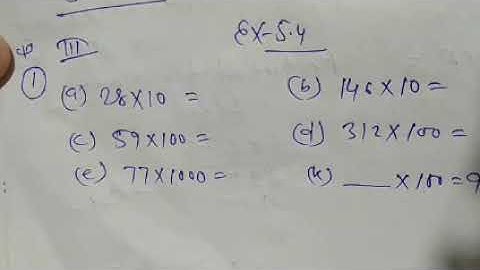 III Ex-5.4
1 (a) 28×10 = (b) 146×10 =
(c) 59×100 = (d) 312×100 =
(e) 77×1000 = (k) ___×100=9